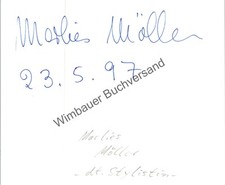 Marlies Möller
23. 5. 97
Wimbauer Buchversand
Marlies
Möller
- dt. Stylistin -